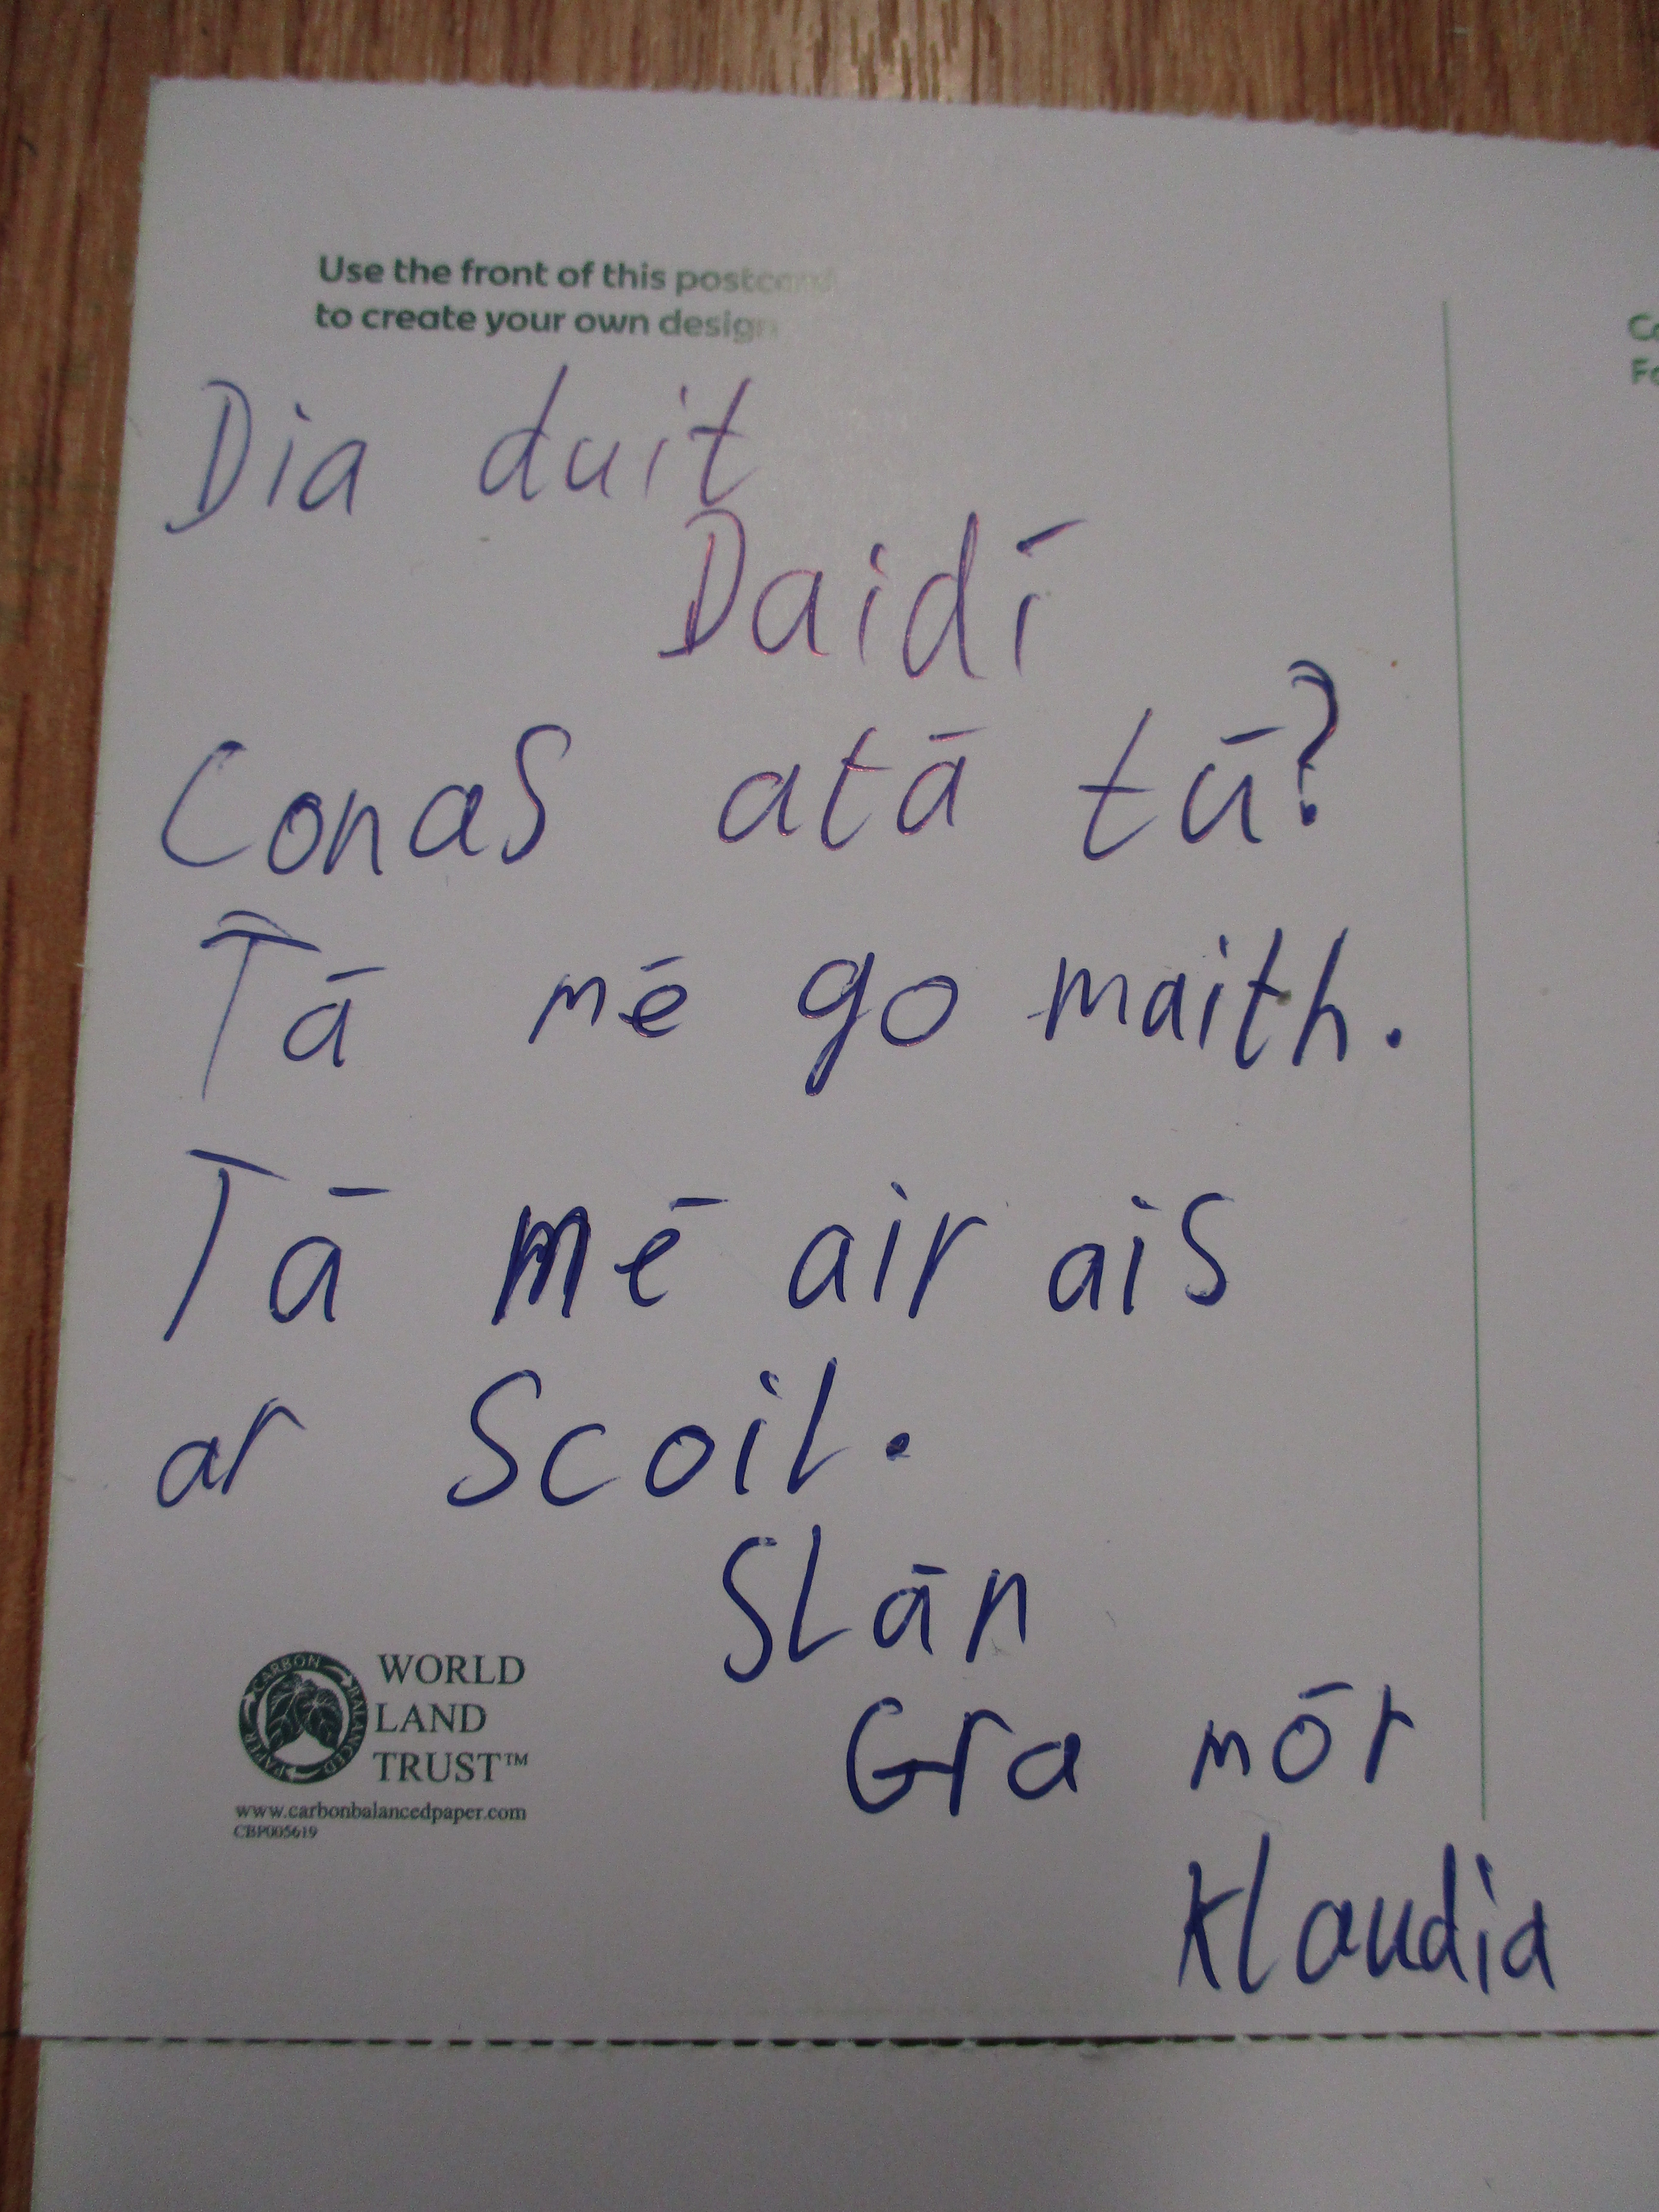 Use the front of this postcard
to create your own design
Dia duit
Daidí
Conas atá tú?
Tá mé go maith.
Tá mé air ais
ar Scoil.
Slán
Gra mór
Klaudia
CARBON BALANCED PAPER
WORLD
LAND
TRUST™
www.carbonbalancedpaper.com
CBP005619